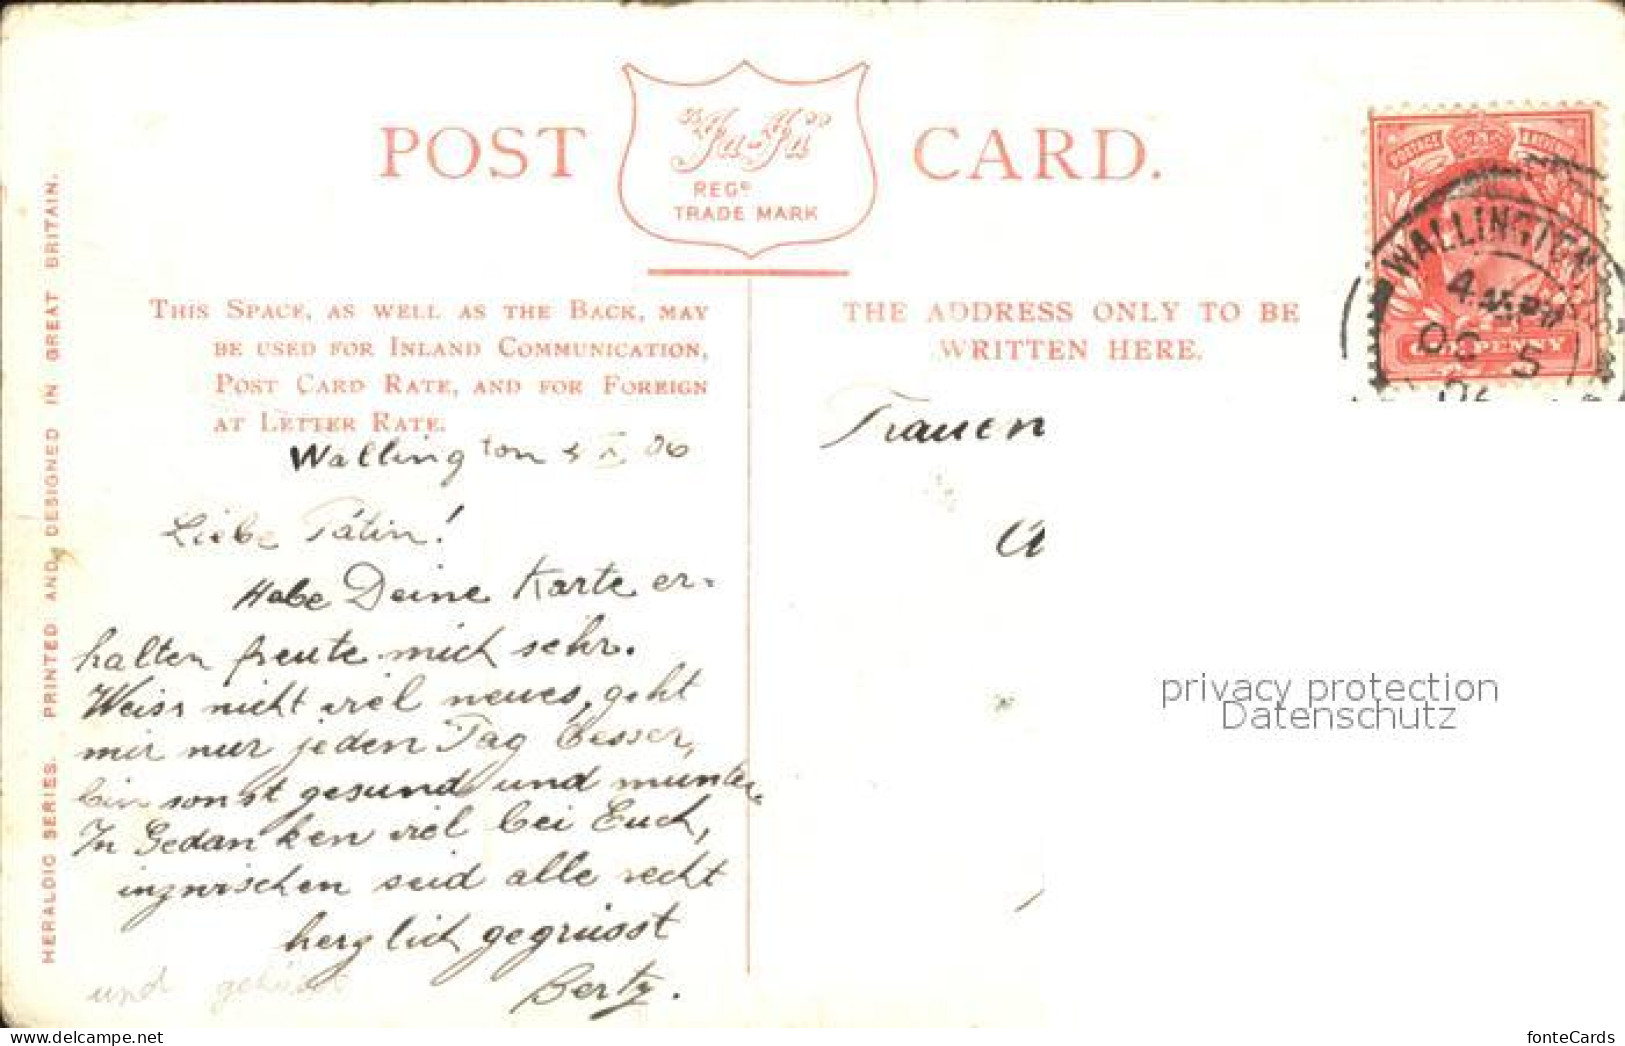 POST CARD.
"Ja-Ja"
REGD
TRADE MARK
THIS SPACE, AS WELL AS THE BACK, MAY
BE USED FOR INLAND COMMUNICATION,
POST CARD RATE, AND FOR FOREIGN
AT LETTER RATE.
THE ADDRESS ONLY TO BE
WRITTEN HERE.
HERALDIC SERIES. PRINTED AND DESIGNED IN GREAT BRITAIN.
POSTAGE
ONE PENNY
WALLINGTON
OC 5
Wallington 5 X 06
Liebe Pátin!
Habe Deine Karte er=
halten freute mich sehr.
Weiss nicht viel neues, geht
mir nur jeden Tag besser,
bin sonst gesund und munter.
In Gedanken viel bei Euch,
inzwischen seid alle recht
herzlich gegrüsst
und
Berty.
Frauen
privacy protection
Datenschutz
www.delcampe.net
fonteCards